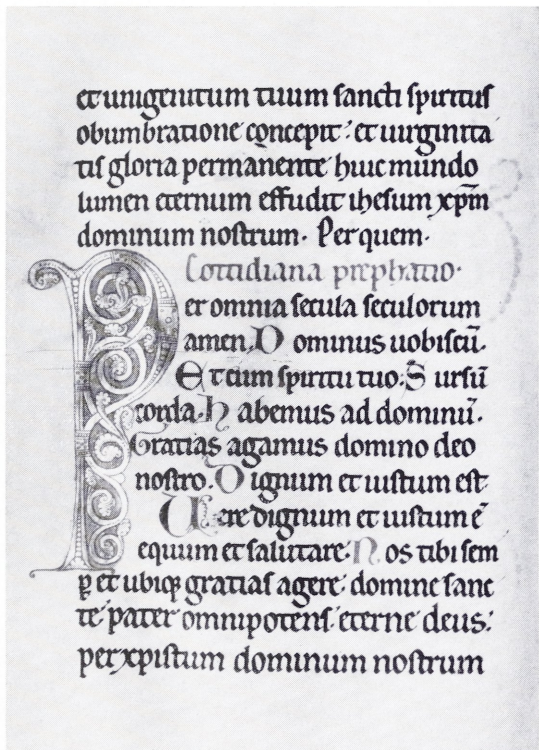 et unigenitum tuum sancti spiritus
obumbratione concepit: et uirginita
tis gloria permanente huic mundo
lumen eternum effudit ihesum xp̄m
dominum nostrum. Per quem.
Cottidiana prephatio.
Per omnia secula seculorum
amen. Dominus uobiscū.
Et cum spiritu tuo. Sursū
corda. Habemus ad dominū.
Gratias agamus domino deo
nostro. Dignum et iustum est
Uere dignum et iustum ē
equum et salutare. Nos tibi sem
ꝑ et ubiqꝫ gratias agere: domine sanc
te pater omnipotens eterne deus:
per xpistum dominum nostrum